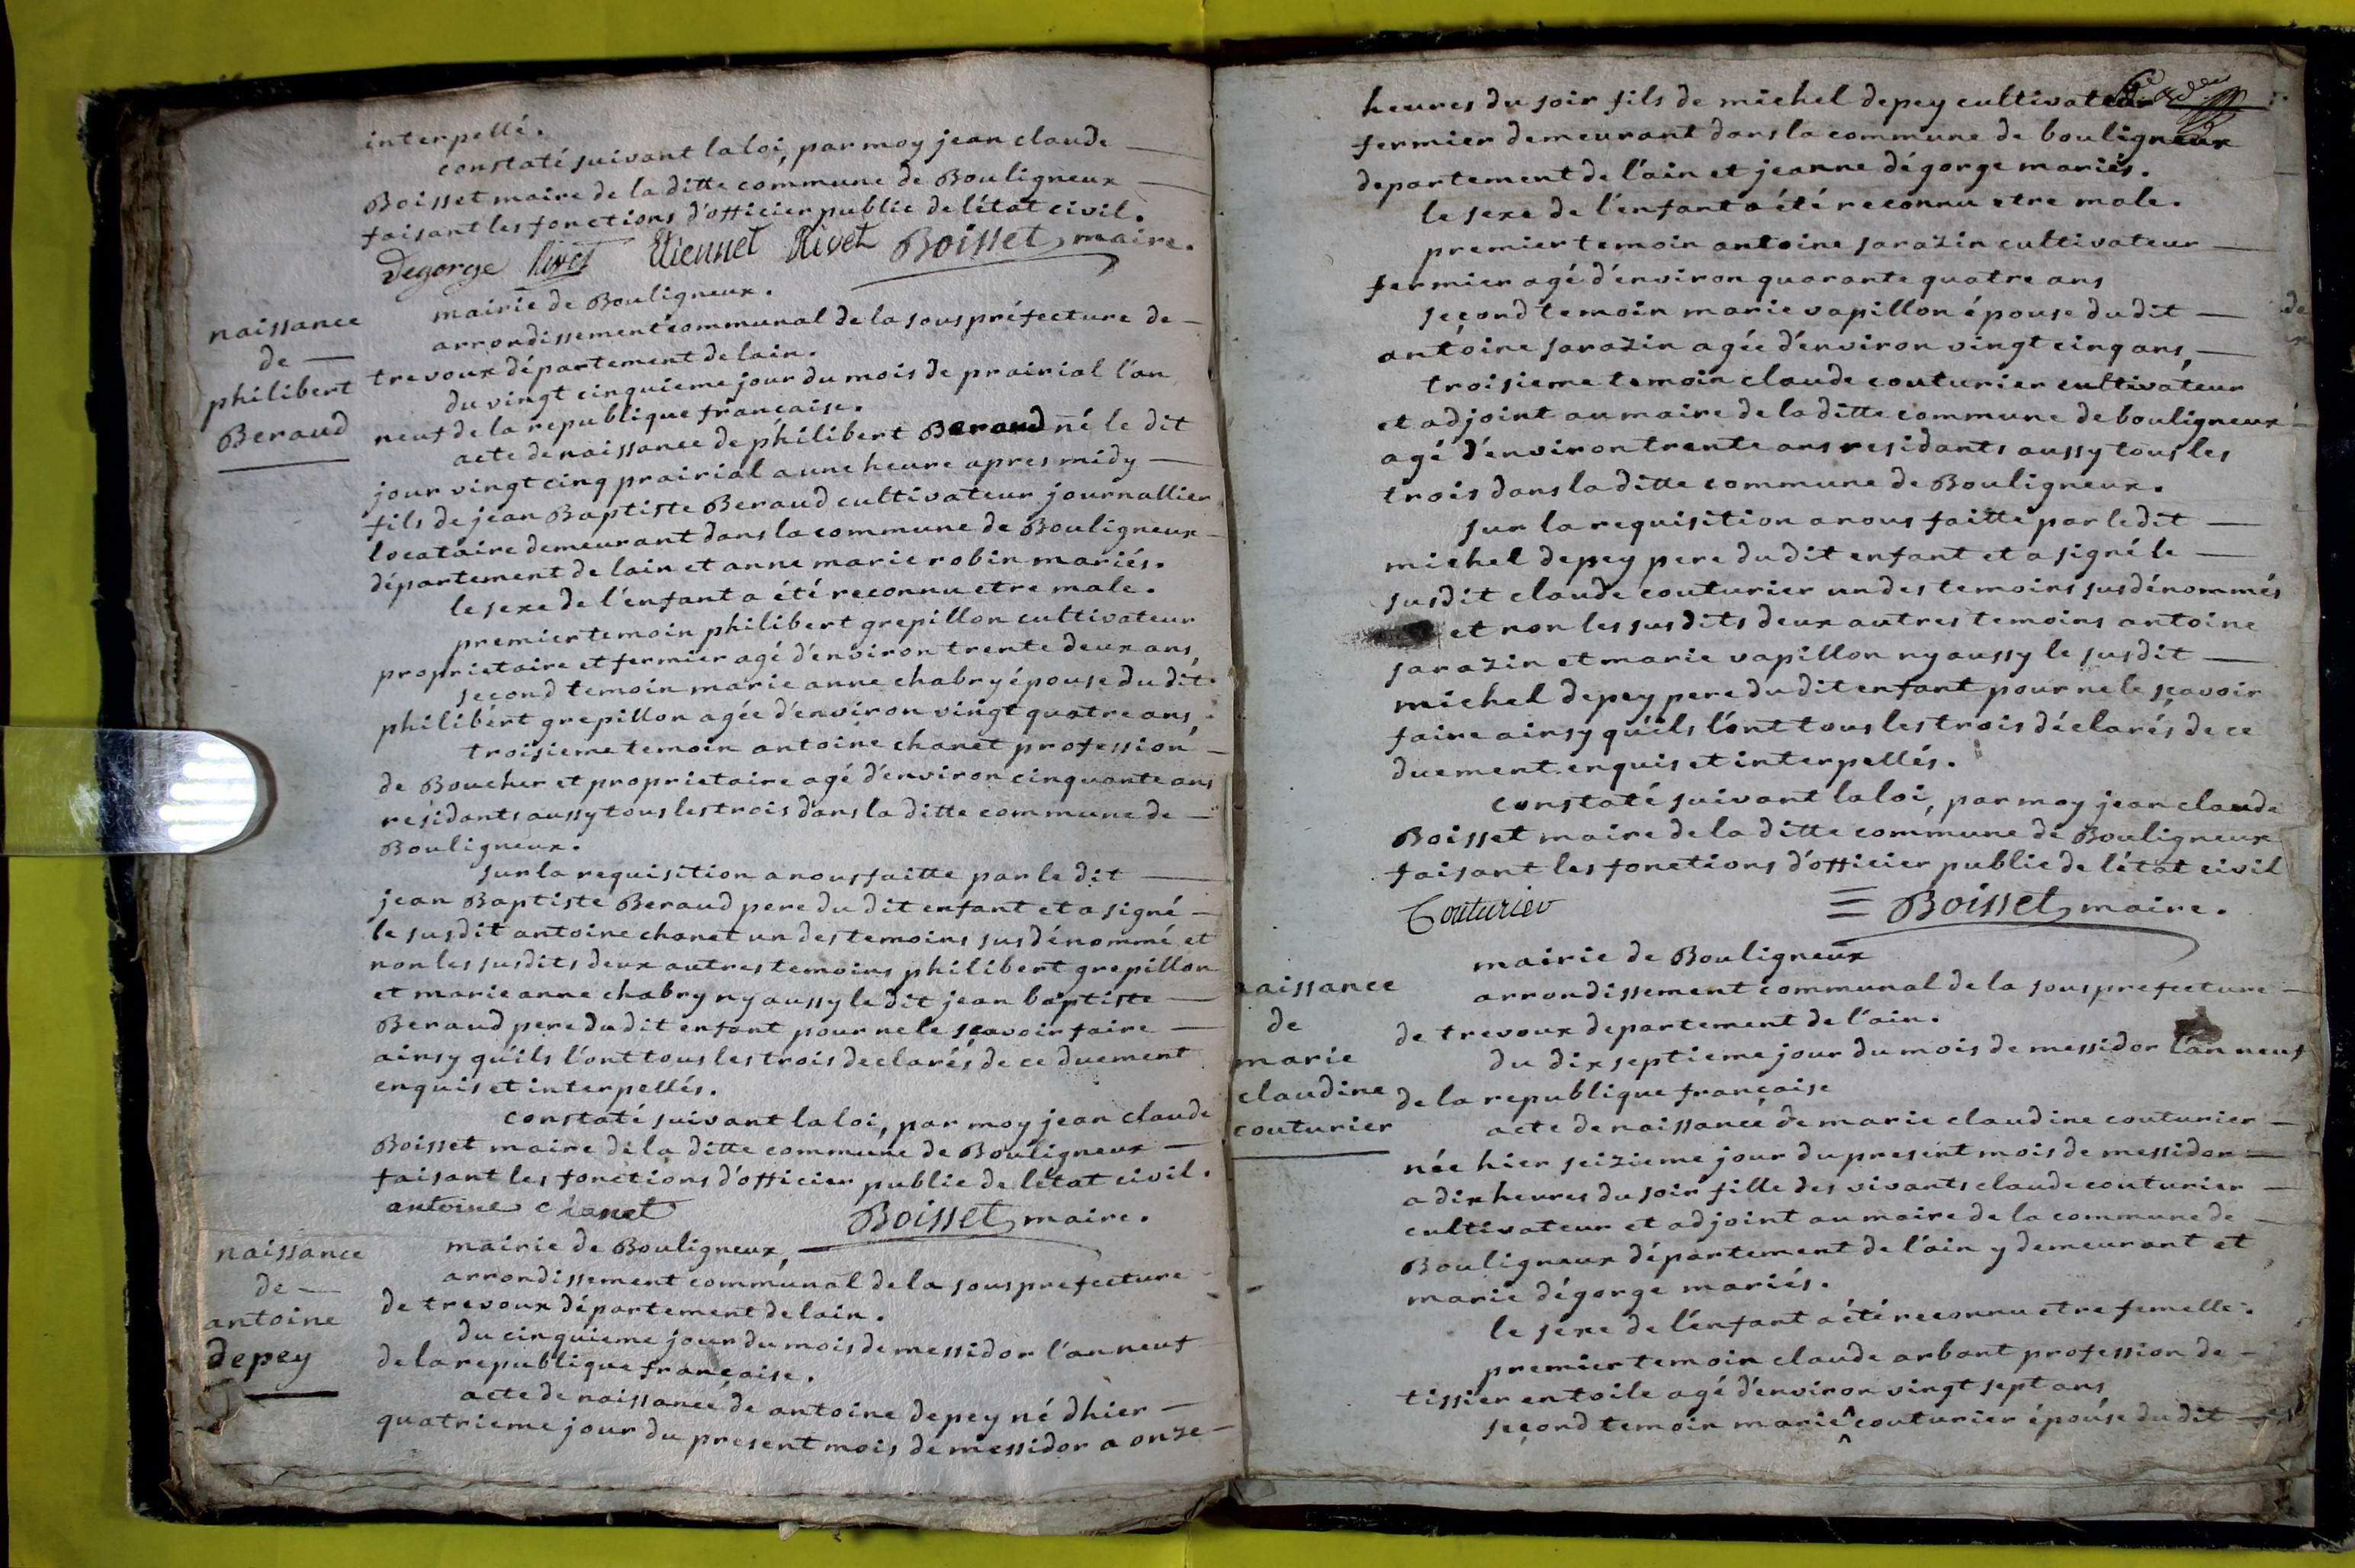 interpellé.
constaté suivant la loi, par moy jean claude
Boisset maire de la ditte commune de Bouligneux
faisant les fonctions d'officier public de l'état civil.
Degorge Rivet Etiennet Rivet Boisset, maire.
naissance
de
philibert
Beraud
mairie de Bouligneux.
arrondissement communal de la souspréfecture de
trevoux département de lain.
du vingt cinquieme jour du mois de prairial l'an
neuf de la republique française.
acte de naissance de philibert Beraud né le dit
jour vingt cinq prairial a une heure apres midy
fils de jean Baptiste Beraud cultivateur journallier
locataire demeurant dans la commune de Bouligneux
département de lain et anne marie robin mariés.
le sexe de l'enfant a été reconnu etre male.
premier temoin philibert grepillon cultivateur
proprietaire et fermier agé d'environ trente deux ans,
second temoin marie anne chabry épouse du dit
philibert grepillon agée d'environ vingt quatre ans,
troisieme temoin antoine chanet profession
de Boucher et proprietaire agé d'environ cinquante ans
résidants aussy tous les trois dans la ditte commune de
Bouligneux.
sur la requisition a nous faitte par le dit
jean Baptiste Beraud pere du dit enfant et a signé
le susdit antoine chanet un des temoins susdénommé et
non les susdits deux autres temoins philibert grepillon
et marie anne chabry ny aussy le dit jean baptiste
Beraud pere du dit enfant pour ne le sçavoir faire
ainsy qu'ils l'ont tous les trois declarés de ce duement
enquis et interpellés.
constaté suivant la loi, par moy jean claude
Boisset maire de la ditte commune de Bouligneux
faisant les fonctions d'officier public de l'état civil.
antoine chanet Boisset, maire.
naissance
de
antoine
depey
mairie de Bouligneux,
arrondissement communal de la sousprefecture
de trevoux département de lain.
du cinquieme jour du mois de messidor l'an neuf
de la republique française.
acte de naissance de antoine depey né dhier
quatrieme jour du present mois de messidor a onze
heures du soir fils de michel depey cultivateur
fermier demeurant dans la commune de bouligneux
departement de l'ain et jeanne dégorge mariés.
le sexe de l'enfant a été reconnu etre male.
premier temoin antoine sarazin cultivateur
fermier agé d'environ quarante quatre ans
second temoin marie vapillon épouse du dit
antoine sarazin agée d'environ vingt cinq ans,
troisieme temoin claude couturier cultivateur
et adjoint au maire de la ditte commune de bouligneux
agé d'environ trente ans residants aussy tous les
trois dans la ditte commune de Bouligneux.
sur la requisition a nous faitte par le dit
michel depey pere du dit enfant et a signé le
susdit claude couturier un des temoins susdénommés
et non les susdits deux autres temoins antoine
sarazin et marie vapillon ny aussy le susdit
michel depey pere du dit enfant pour ne le sçavoir
faire ainsy qu'ils l'ont tous les trois déclarés de ce
duement enquis et interpellés.
constaté suivant la loi, par moy jean claude
Boisset maire de la ditte commune de Bouligneux
faisant les fonctions d'officier public de l'état civil
Couturier Boisset, maire.
naissance
de
marie
claudine
couturier
mairie de Bouligneux
arrondissement communal de la sousprefecture
de trevoux departement de l'ain.
du dix septieme jour du mois de messidor l'an neuf
de la republique française
acte de naissance de marie claudine couturier
née hier seizieme jour du present mois de messidor
a dix heures du soir fille des vivants claude couturier
cultivateur et adjoint au maire de la commune de
Bouligneux département de l'ain y demeurant et
marie dégorge mariés.
le sexe de l'enfant a été reconnu etre femelle.
premier temoin claude arbant profession de
tissier en toile agé d'environ vingt sept ans
second temoin marie couturier épouse du dit